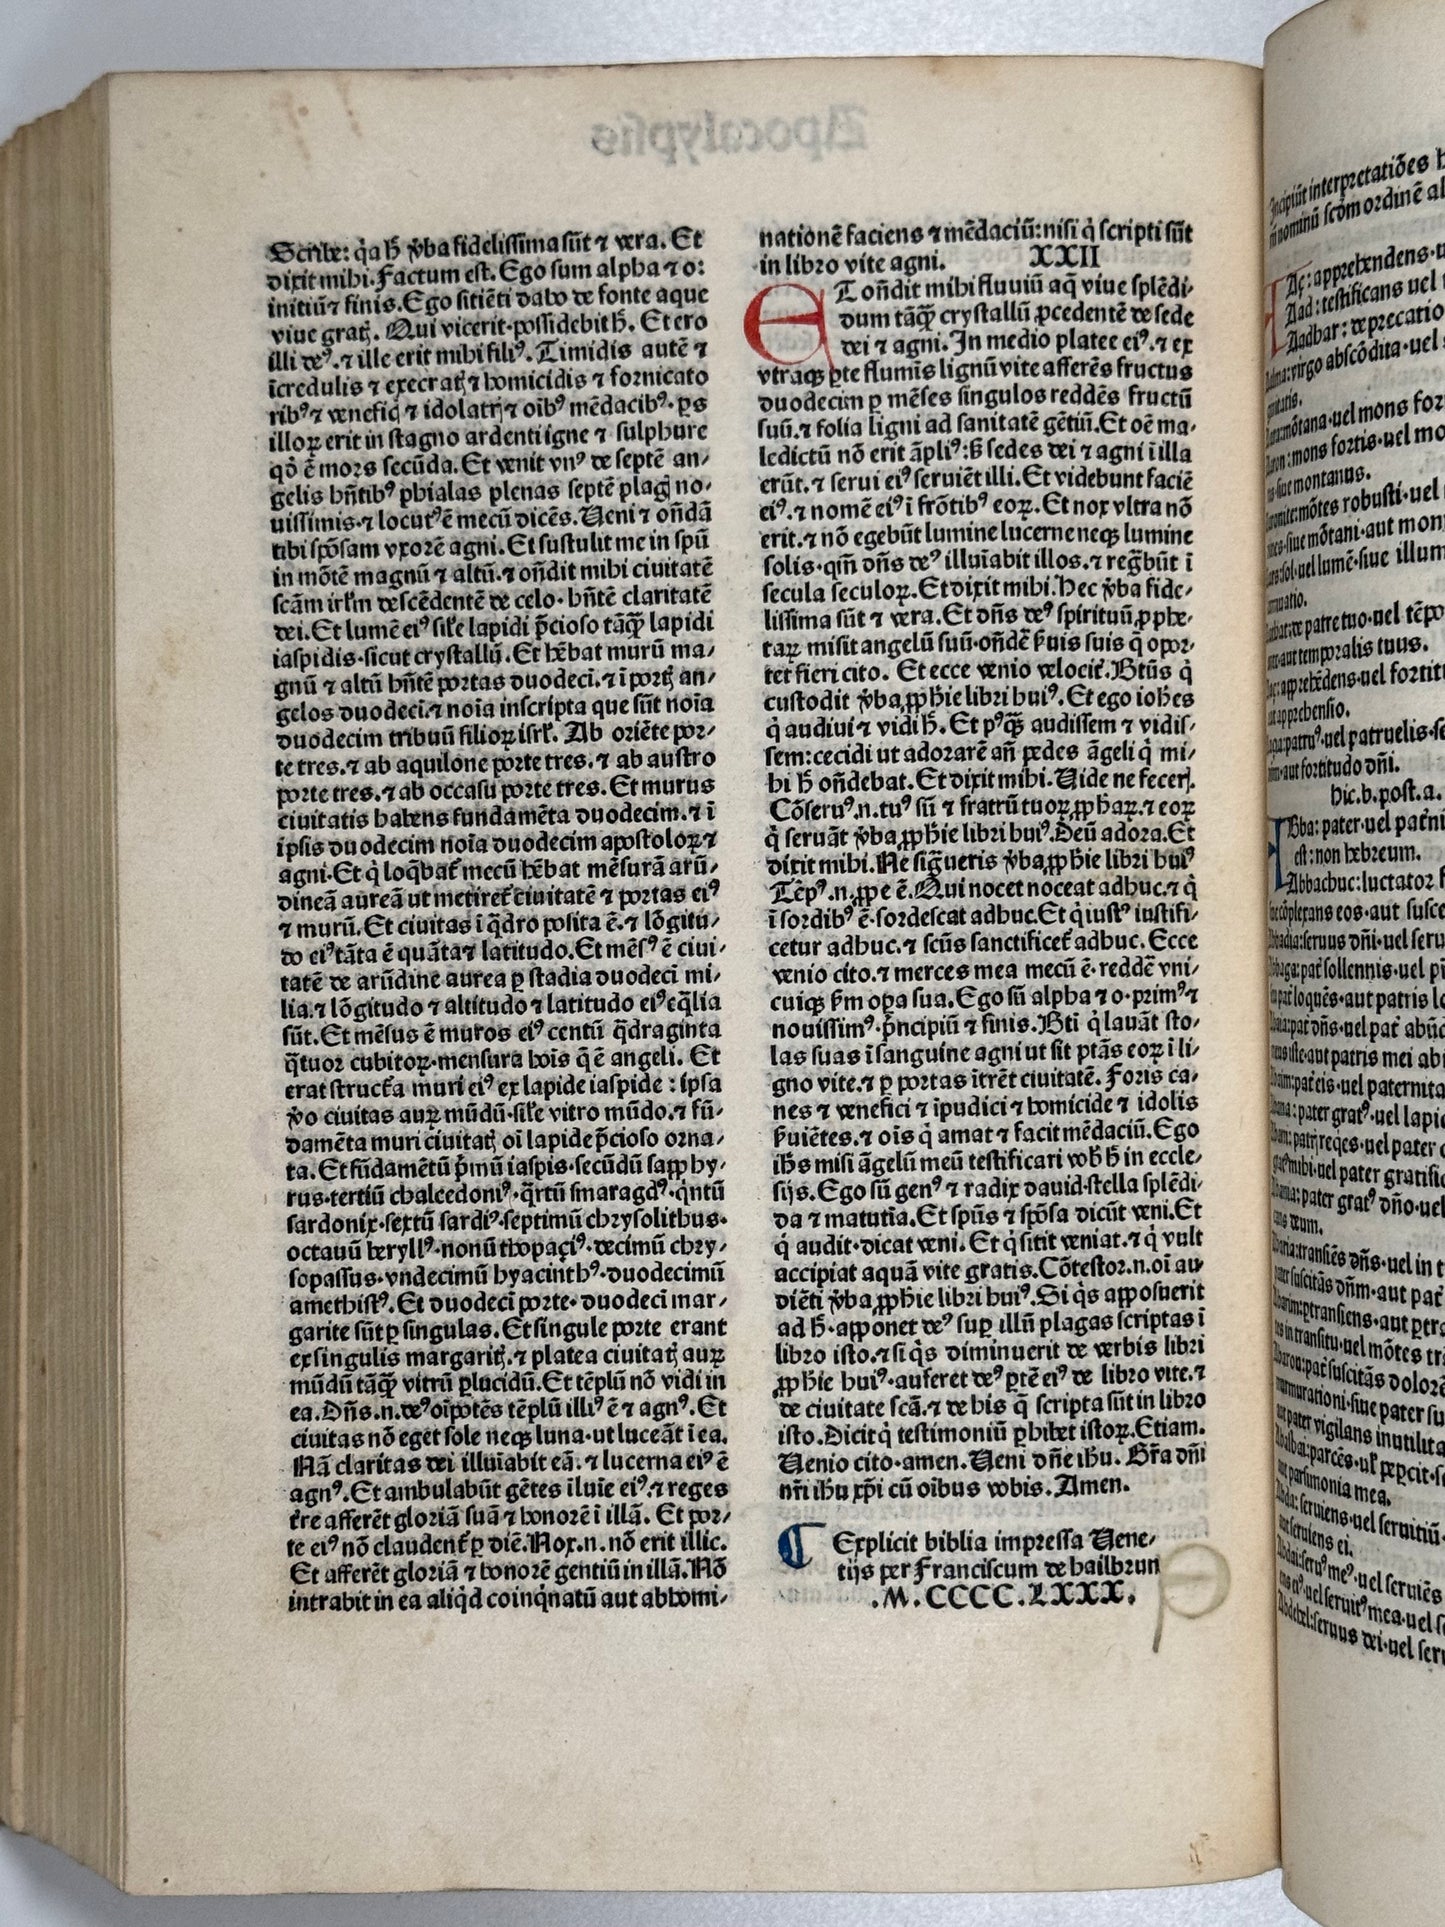 Scribe: q̃a h̃ v̾ba fidelissima sũt ⁊ vera. Et
dixit mihi. Factum est. Ego sum alpha ⁊ o:
initiũ ⁊ finis. Ego sitiẽti dabo de fonte aque
viue gratꝭ. Qui vicerit·possidebit h̃. Et ero
illi deꝰ.⁊ ille erit mihi filiꝰ. Timidis autẽ ⁊
ĩcredulis ⁊ execratꝭ ⁊ homicidis ⁊ fornicato
ribꝰ ⁊ venefic̃ ⁊ idolatrꝭ ⁊ oĩbꝰ mẽdacibꝰ· ꝑs
illoꝝ erit in stagno ardenti igne ⁊ sulphure
qđ ẽ mors secũda. Et venit vnꝰ de septẽ an⸗
gelis hñtibꝰ phialas plenas septẽ plagꝭ no⸗
uissimis·⁊ locutꝰ ẽ mecũ dicẽs. Ueni ⁊ oñdã
tibi spõsam vxorẽ agni. Et sustulit me in spũ
in mõtẽ magnũ ⁊ altũ.⁊ oñdit mihi ciuitatẽ
scãm irłm descẽdentẽ de celo· hñtẽ claritatẽ
dei. Et lumẽ eiꝰ sił'e lapidi p̃cioso tãq̃ lapidi
iaspidis·sicut crystallũ. Et hẽbat murũ ma⸗
gnũ ⁊ altũ hñtẽ portas duodeci.⁊ ĩ portꝭ an⸗
gelos duodecĩ.⁊ noĩa inscripta que sũt noĩa
duodecim tribuũ filioꝝ isrł. Ab oriẽte por⸗
te tres.⁊ ab aquilone porte tres. ⁊ ab austro
porte tres.⁊ ab occasu porte tres. Et murus
ciuitatis habens fundamẽta duodecim.⁊ ĩ
ipsis duodecim noĩa duodecim apostoloꝝ ⁊
agni. Et q̇ loq̃bat̃ mecũ hẽbat mẽsurã arũ⸗
dineã aureã ut metiret̃ ciuitatẽ ⁊ portas eiꝰ
⁊ murũ. Et ciuitas ĩ q̃dro posita ẽ.⁊ lõgitu⸗
do eiꝰ tãta ẽ quãta ⁊ latitudo. Et mẽsꝰ ẽ ciui⸗
tatẽ de arũdine aurea ꝑ stadia duodecĩ mi⸗
lia.⁊ lõgitudo ⁊ altitudo ⁊ latitudo eiꝰ eq̃lia
sũt. Et mẽsus ẽ muros eiꝰ centũ q̃draginta
q̃tuor cubitoꝝ·mensura hoĩs q̃ ẽ angeli. Et
erat struct̃a muri eiꝰ ex lapide iaspide : ipsa
v̾o ciuitas auꝝ mũdũ·sił'e vitro mũdo.⁊ fũ⸗
damẽta muri ciuitatꝭ oĩ lapide p̃cioso orna⸗
ta. Et fũdamẽtũ p̃mũ iaspis·secũdũ sapphy⸗
rus·tertiũ chalcedoniꝰ·q̃rtũ smaragdꝰ·q̇ntũ
sardonix·sextũ sardiꝰ·septimũ chrysolithus·
octauũ beryllꝰ·nonũ thopaçiꝰ·decimũ chry⸗
sopassus·vndecimũ hyacinthꝰ·duodecimũ
amethistꝰ. Et duodecĩ porte· duodecĩ mar⸗
garite sũt ꝑ singulas. Et singule porte erant
ex singulis margaritꝭ.⁊ platea ciuitatꝭ auꝝ
mũdũ tãq̃ vitrũ ꝑlucidũ. Et tẽplũ nõ vidi in
ea. Dñs.n.deꝰ oĩpotẽs tẽplũ illiꝰ ẽ ⁊ agnꝰ. Et
ciuitas nõ eget sole neqꝫ luna·ut luceãt ĩ ea.
Nã claritas dei illuĩabit eã.⁊ lucerna eiꝰ ẽ
agnꝰ. Et ambulabũt gẽtes ĩ luie eiꝰ.⁊ reges
t̃re afferẽt gloriã suã ⁊ honorẽ ĩ illã. Et por⸗
te eiꝰ nõ claudent̃ ꝑ diẽ. Nox.n. nõ erit illic.
Et afferẽt gloriã ⁊ honorẽ gentiũ in illã. Nõ
intrabit in ea aliq̇d coinq̇natũ aut abhomi⸗
nationẽ faciens ⁊ mẽdaciũ: nisi q̇ scripti sũt
in libro vite agni. XXII
ET oñdit mihi fluuiũ aq̃ viue splẽdi⸗
dum tãq̃ crystallũ ꝓcedentẽ de sede
dei ⁊ agni. In medio platee eiꝰ.⁊ ex
vtraqꝫ ꝑte flumĩs lignũ vite afferẽs fructus
duodecim ꝑ mẽses singulos reddẽs fructũ
suũ.⁊ folia ligni ad sanitatẽ gẽtiũ. Et oẽ ma⸗
ledictũ nõ erit ãpliꝰ: s̃ sedes dei ⁊ agni ĩ illa
erũt.⁊ serui eiꝰ seruiẽt illi. Et videbunt faciẽ
eiꝰ.⁊ nomẽ eiꝰ ĩ frõtibꝰ eoꝝ. Et nox vltra nõ
erit.⁊ nõ egebũt lumine lucerne neqꝫ lumine
solis·qm̃ dñs deꝰ illuĩabit illos.⁊ regñbũt ĩ
secula seculoꝝ. Et dixit mihi. Hec v̾ba fide⸗
lissima sũt ⁊ vera. Et dñs deꝰ spirituũ ꝓphe⸗
taꝝ misit angelũ suũ·oñdẽ s̾uis suis q̃ opor⸗
tet fieri cito. Et ecce venio velocit̃. Btũs q̇
custodit v̾ba ꝓph̃ie libri huiꝰ. Et ego iohẽs
q̇ audiui ⁊ vidi h̃. Et pꝰq̃ audissem ⁊ vidis⸗
sem: cecidi ut adorarẽ añ pedes ãgeli q̇ mi⸗
hi h̃ oñdebat. Et dixit mihi. Uide ne fecerꝭ.
Cõseruꝰ.n.tuꝰ sũ ⁊ fratrũ tuoꝝ ꝓph̃aꝝ.⁊ eoꝝ
q̇ seruãt v̾ba ꝓph̃ie libri huiꝰ. Deũ adora. Et
dixit mihi. Ne sig̃ueris v̾ba ꝓph̃ie libri huiꝰ
Tẽpꝰ.n.ꝓpe ẽ. Qui nocet noceat adhuc.⁊ q̇
ĩ sordibꝰ ẽ·sordescat adhuc. Et q̇ iustꝰ iustifi⸗
cetur adhuc.⁊ scũs sanctificet̃ adhuc. Ecce
venio cito.⁊ merces mea mecũ ẽ· reddẽ vni⸗
cuiqꝫ s̾m oꝑa sua. Ego sũ alpha ⁊ o·primꝰ ⁊
nouissimꝰ·p̃ncipiũ ⁊ finis. Bti q̇ lauãt sto⸗
las suas ĩ sanguine agni ut sit ptãs eoꝝ ĩ li⸗
gno vite.⁊ ꝑ portas ĩtrẽt ciuitatẽ. Foris ca⸗
nes ⁊ venefici ⁊ ĩpudici ⁊ homicide ⁊ idolis
s̾uiẽtes.⁊ oĩs q̇ amat ⁊ facit mẽdaciũ. Ego
ihs̃ misi ãgelũ meũ testificari vob̃ h̃ in eccle⸗
sijs. Ego sũ genꝰ ⁊ radix dauid·stella splẽdi⸗
da ⁊ matutĩa. Et spũs ⁊ spõsa dicũt veni. Et
q̇ audit·dicat veni. Et q̇ sitit veniat.⁊ q̇ vult
accipiat aquã vite gratis. Cõtestor.n.oĩ au⸗
diẽti v̾ba ꝓph̃ie libri huiꝰ. Si q̇s apposuerit
ad h̃·apponet deꝰ suꝑ illũ plagas scriptas ĩ
libro isto.⁊ si q̇s diminuerit de verbis libri
ꝓph̃ie huiꝰ·auferet deꝰ ꝑtẽ eiꝰ de libro vite.⁊
de ciuitate scã.⁊ de his q̃ scripta sũt in libro
isto. Dicit q̇ testimoniũ ꝑhibet istoꝝ. Etiam.
Uenio cito·amen. Ueni dñe ihũ. Gr̃a dñi
nr̃i ihũ xp̃i cũ oĩbus vobis. Amen.
C Explicit biblia impressa Uene⸗
tijs per Franciscum de hailbrun
.M.CCCC.LXXX.
Incipiũt interpretatiões h
nominũ scḋm ordinẽ al
apprehendens·u
Aad: testificans uel
Aadhar: deprecatio
virgo abscõdita·uel
mõtana·uel mons for
mons fortis·uel mo
siue montanus.
mõtes robusti·uel
siue mõtani·aut mon
uel lumẽ·siue illum
patre tuo·uel tẽpo
aut temporalis tuus.
apprehẽdens·uel fortit
apprehensio.
patruꝰ·uel patruelis·se
aut fortitudo dñi.
hic.b.post.a.
ABba: pater·uel pat̃ ni
est: non hebreum.
Abbacuc: luctator
cõplexans eos·aut susce
seruus dñi·uel seru
pat̃ sollennis·uel
loquẽs·aut patris
pat̃ dñs·uel pat̃ abũd
iste·aut patris mei
pat̃ eis·uel paternita
pater gratꝰ·uel lapi
uel pater
mihi·uel pater gratifi
pater gratꝰ dño·uel
deum.
transiẽs dñs·uel in t
suscitãs dñm·aut pat̃
transitu·uel mõtes
pat̃ suscitãs dolorẽ
murmurationi·siue pater su
pater vigilans inutilita
parsimonia mea.
seruiens·uel seruitiũ
seruiens ei.
seruꝰ meꝰ·uel seruiẽs
Abdehel: seruus dei·uel seru